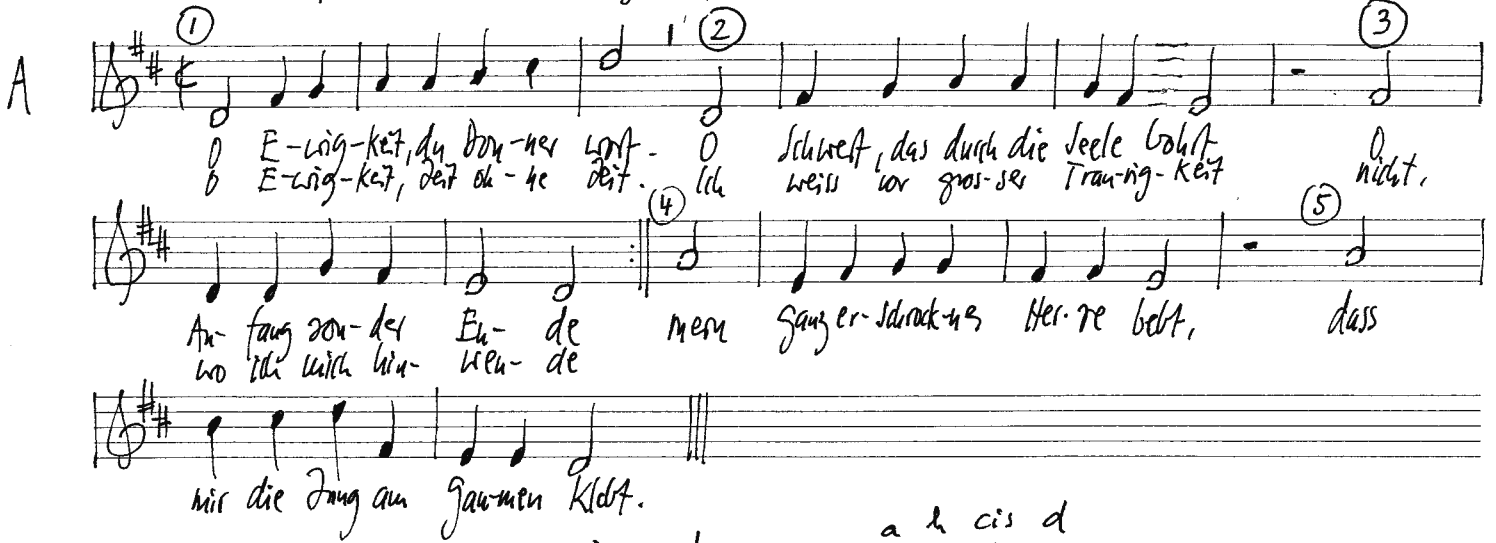 1 2 3
A
O E-wig-keit, du Don-ner wort. O Schwert, das durch die Seele bohrt O
O E-wig-keit, Zeit oh-ne Zeit. Ich weiss vor gros-ser Trau-rig-keit nicht,
4 5
An- fang son-der En- de mein ganz er-schrock-nes Her-ze bebt, dass
wo ich mich hin- wen- de
mir die Zung am Gau-men klebt.
a h cis d